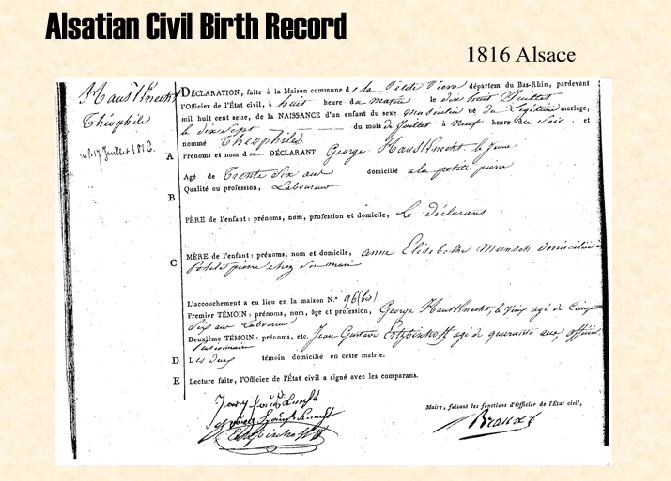 Alsatian Civil Birth Record
1816 Alsace
Haus Knecht
Théophile
né 17 Juillet 1816.
DÉCLARATION, faite à la Maison commune d la Petite Pierre départem du Bas-Rhin, pardevant
l'Officier de l'État civil, à huit heure du matin le dix huit Juillet
mil huit cent seize, de la NAISSANCE d'un enfant du sexe masculin né de légitime mariage,
le dix sept du mois de Juillet à neuf heure du soir. et
nommé Théophile
A Prenoms et nom du DÉCLARANT George Haus Knecht le jeune
Agé de Trente Six ans domicilié à la petite pierre
Qualité ou profession, Laboureur
B
PÈRE de l'enfant: prénoms, nom, profession et domicile, le déclarant
MÈRE de l'enfant: prénoms, nom et domicile, anne Elisabethe Munsch domiciliée
C petite pierre chez son mari
L'accouchement a eu lieu en la maison N.° 96 (bis)
Premier TÉMOIN: prénoms, nom, âge et profession, George Haus Knecht, le vieux agé de
Six ans Laboureur
Deuxième TÉMOIN: prénoms, etc. Jean Gustave agé de quarante ans, officier
Pensionnaire
D Les deux témoin domicilié en cette mairie.
E Lecture faite, l'Officier de l'État civil a signé avec les comparans.
Maire, faisant les fonctions d'Officier de l'État civil,